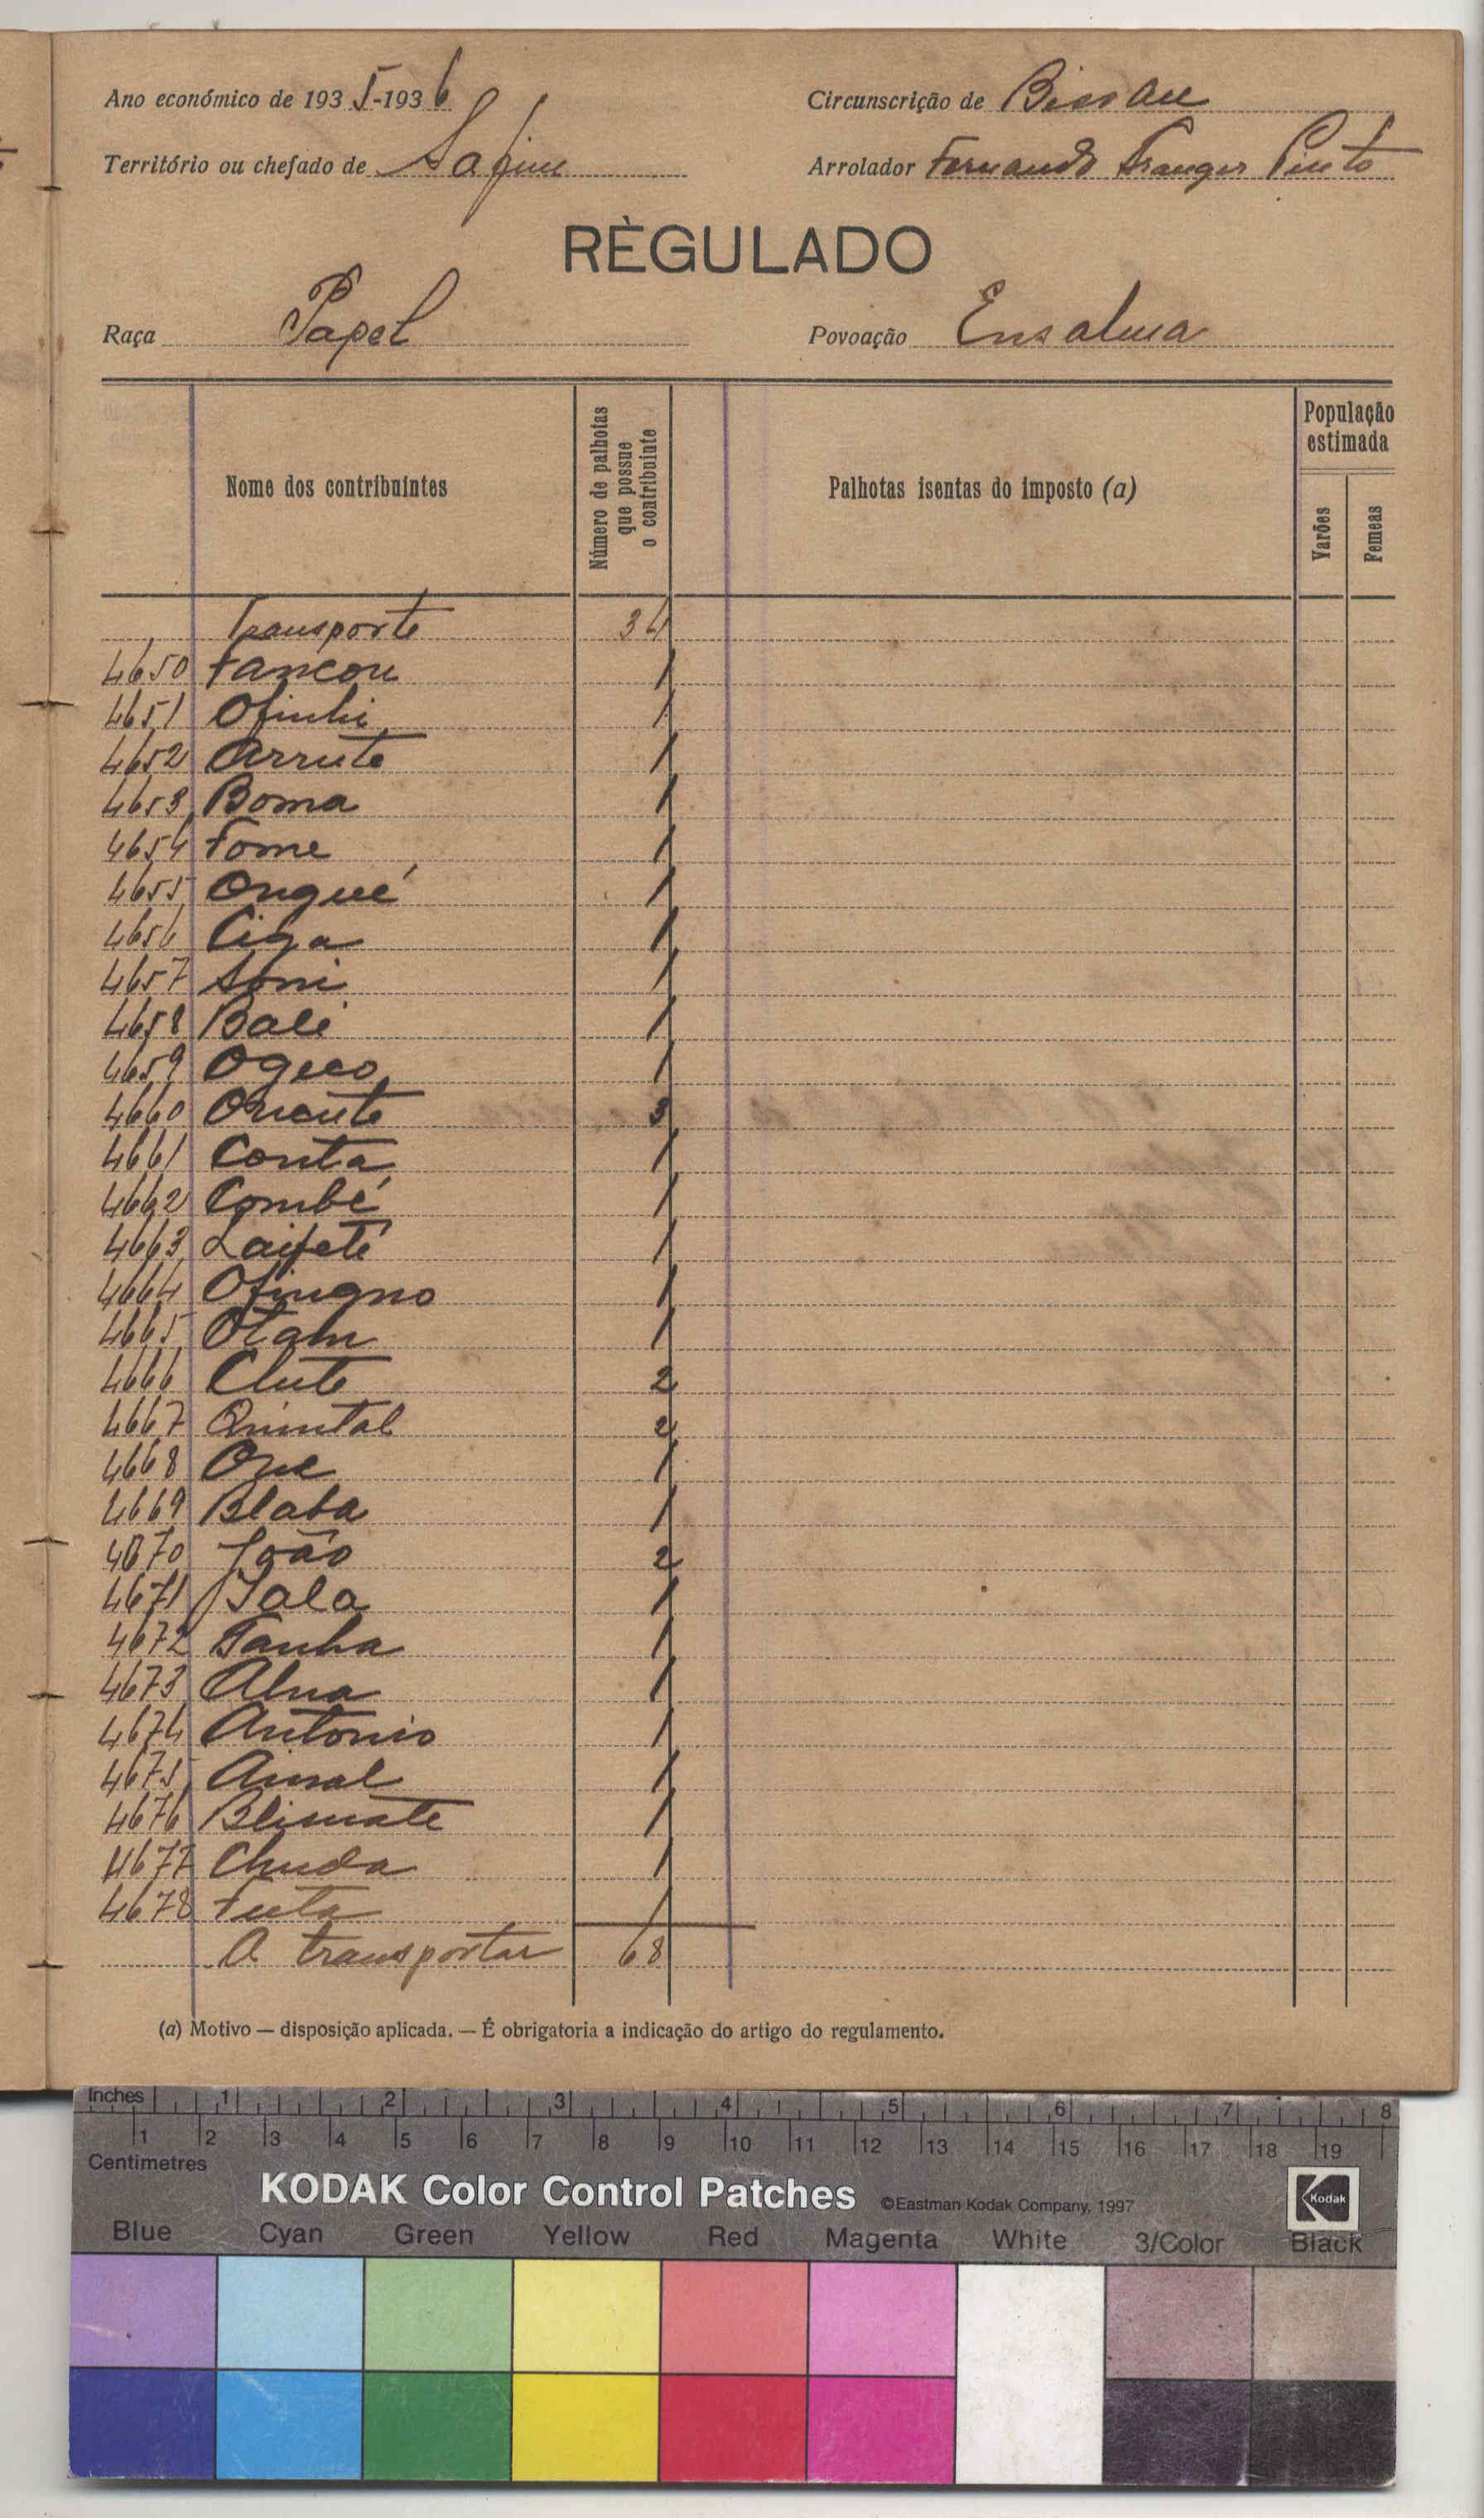 Ano económico de 1935-1936 Circunscrição de Bissau
Território ou chefado de Safim Arrolador Fernando Pinto
RÈGULADO
Raça Papel Povoação Ensalma
Nome dos contribuintes
Número de palhotas que possue o contribuinte
Palhotas isentas do imposto (a)
População estimada
Varões
Femeas
Transporte 34
4650 Fancou 1
4651 Ofinhi 1
4652 Arrute 1
4653 Boma 1
4654 Fome 1
4655 Ongué 1
4656 Ciga 1
4657 Soni 1
4658 Bali 1
4659 Ogueo 1
4660 3
4661 Conta 1
4662 Combé 1
4663 Laifete 1
4664 Ofingno 1
4665 Otam 1
4666 Clute 2
4667 Quintal 2
4668 1
4669 Blaba 1
4670 João 2
4671 Sala 1
4672 Tanha 1
4673 Alna 1
4674 Antonio 1
4675 1
4676 Blimate 1
4677 Chuda 1
4678 Futa 1
A transportar 68
(a) Motivo — disposição aplicada. — É obrigatoria a indicação do artigo do regulamento.
Inches 1 2 3 4 5 6 7 8
1 2 3 4 5 6 7 8 9 10 11 12 13 14 15 16 17 18 19
Centimetres
KODAK Color Control Patches ©Eastman Kodak Company, 1997 Kodak
Blue Cyan Green Yellow Red Magenta White 3/Color Black